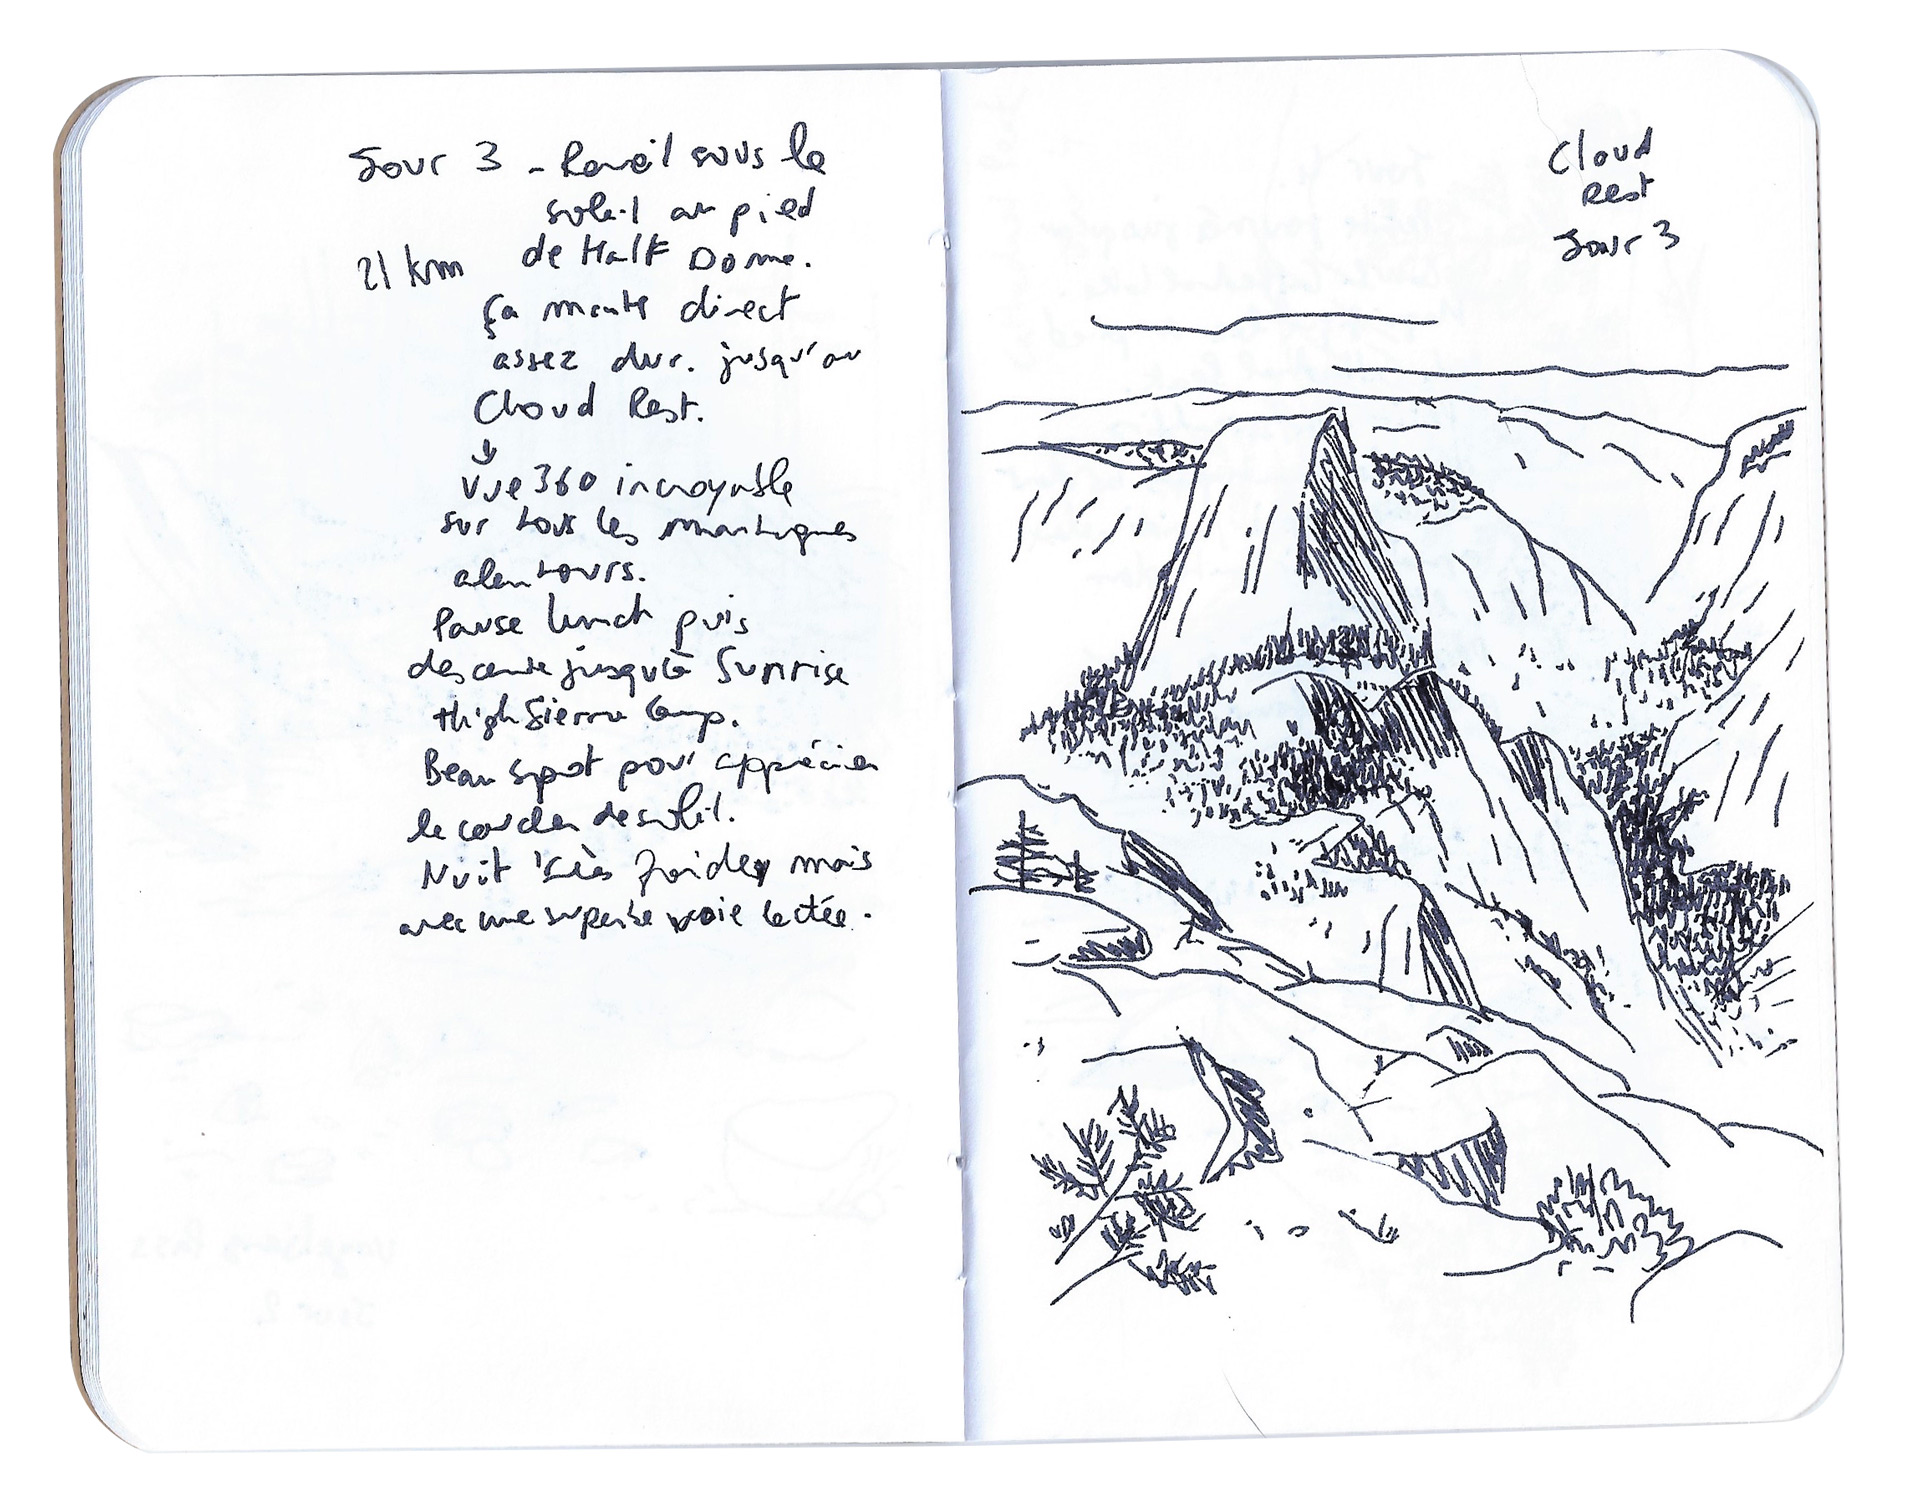 Jour 3 - Reveil sous le
soleil au pied
de Half Dome.
21 km
ça monte direct
assez dur. jusqu'au
Cloud Rest.
vue 360 incroyable
sur tous les montagnes
alentours.
Pause lunch puis
descente jusqu'à Sunrise
High Sierra Camp.
Beau spot pour apprécier
le coucher de soleil.
Nuit très froide mais
avec une superbe voie lactée.
Cloud
Rest
Jour 3